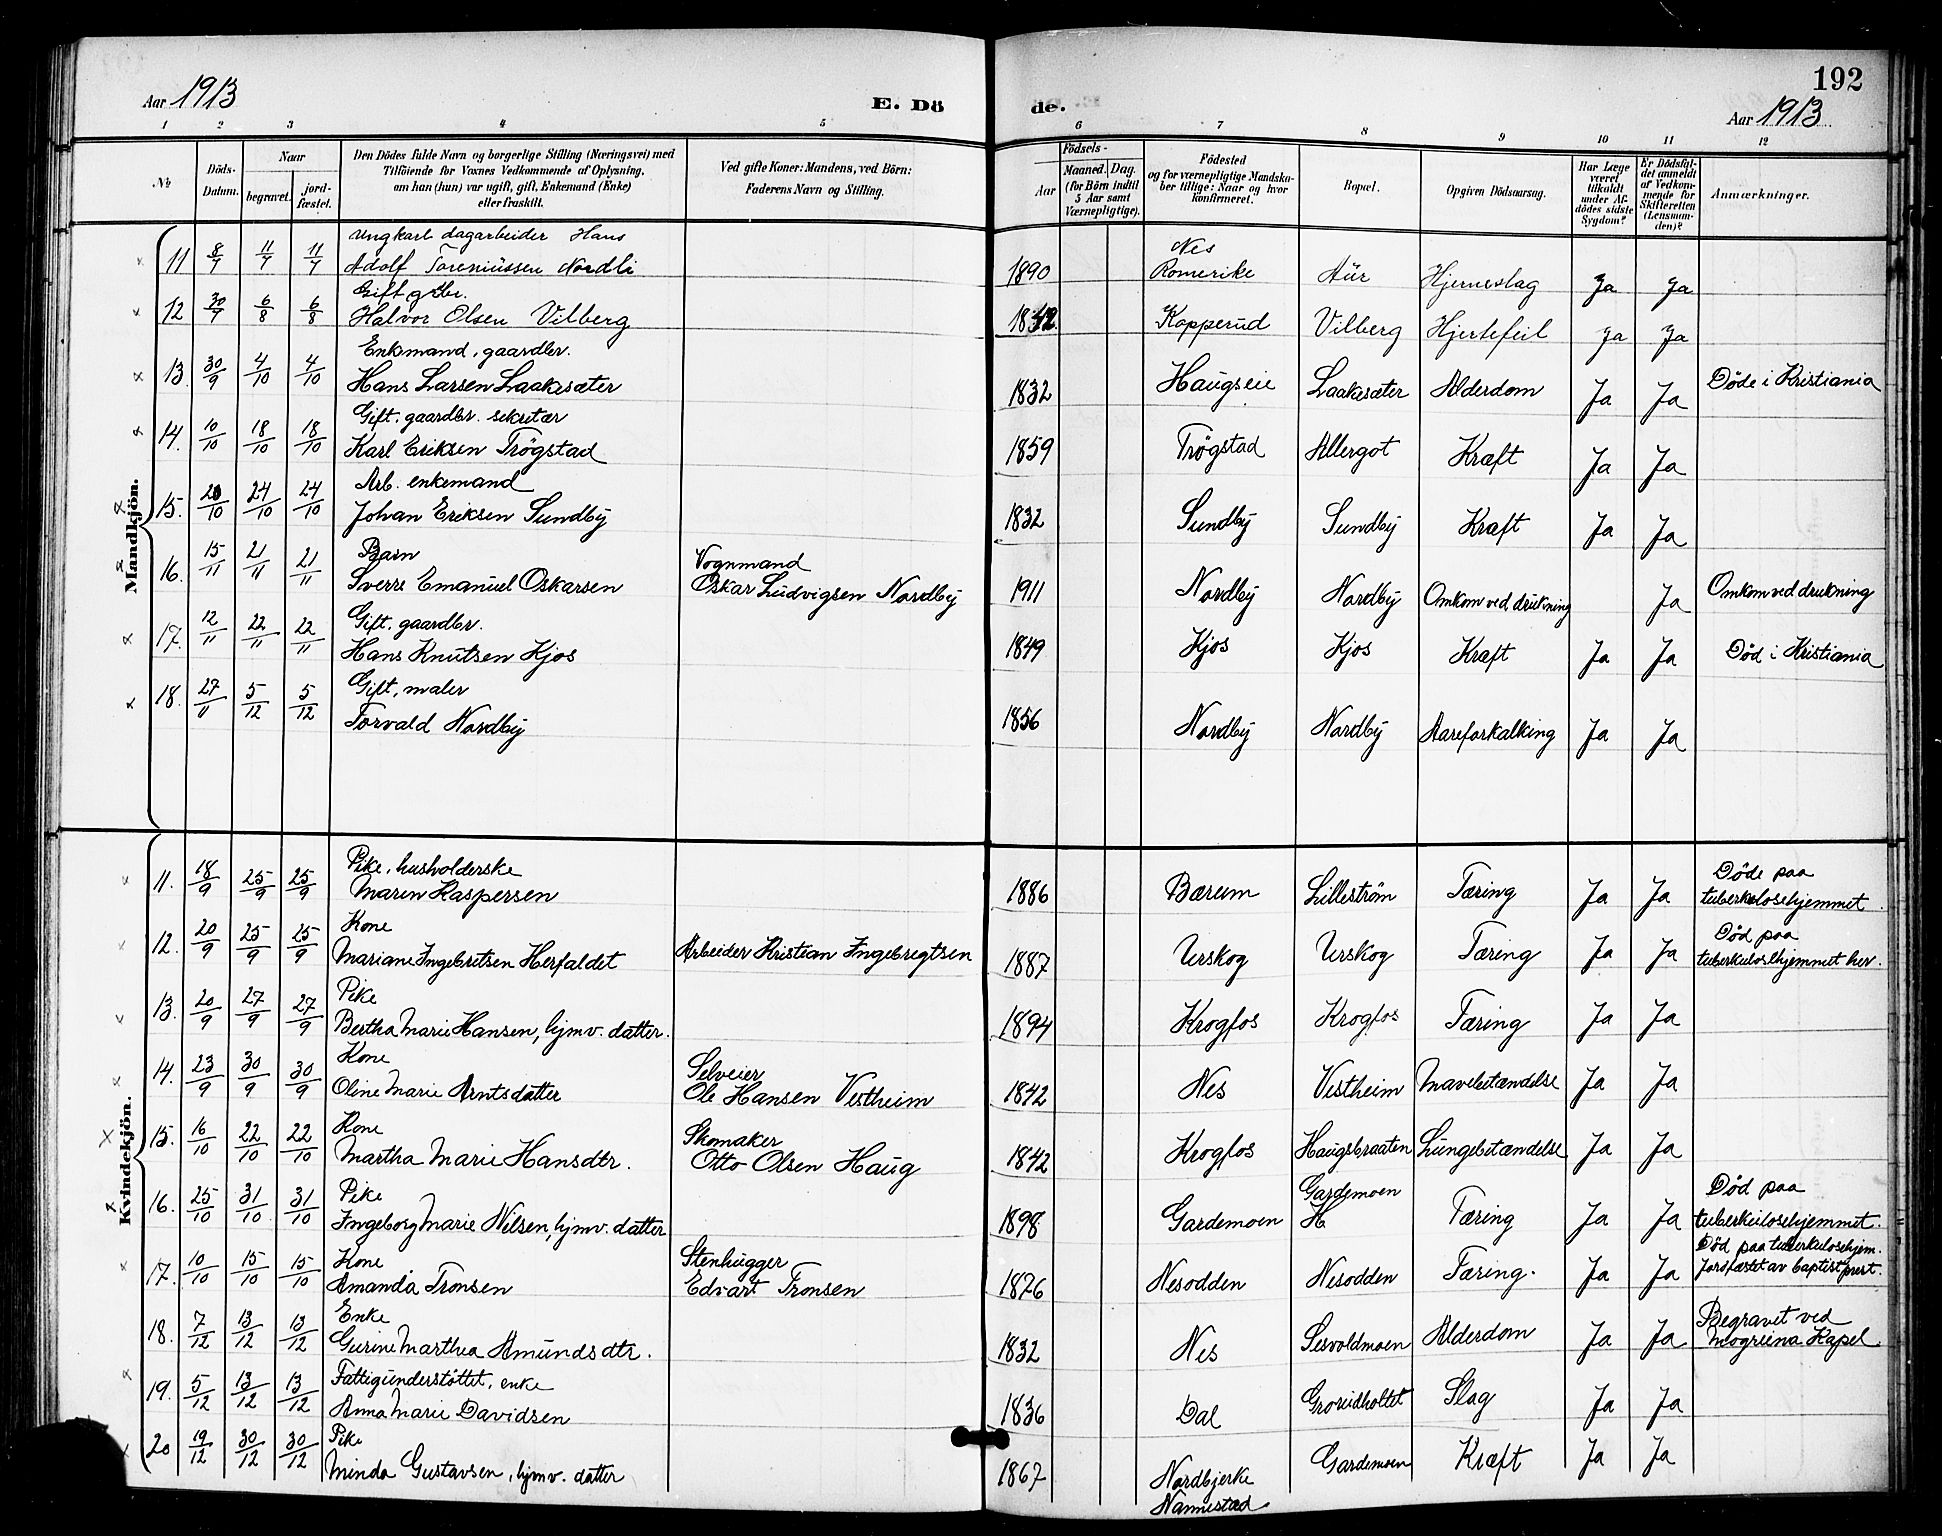 Aar 1913
E. Dö
de.
192
Aar 1913
1 2 3 4 5 6 7 8 9 10 11 12
No
Döds-Datum.
Naar
begravet.
jord-fæstet.
Den Dödes fulde Navn og borgerlige Stilling (Næringsvei) med
Tilföiende for Voxnes Vedkommende af Oplysning,
om han (hun) var ugift, gift, Enkemand (Enke)
eller fraskilt.
Ved gifte Koner: Mandens, ved Börn:
Faderens Navn og Stilling.
Födsels-
Aar
Maaned. Dag.
(for Börn indtil
5 Aar samt
Værnepligtige).
Födested
og for værnepligtige Mandska-
ber tillige: Naar og hvor
konfirmeret.
Bopæl.
Opgiven Dödsaarsag.
Har Læge
været
tilkaldt
under Af-
dödes sidste
Sygdom?
Er Dödsfal-
det anmeldt
af Vedkom-
mende for
Skifteretten
(Lensman-
den)?
Anmærkninger.
Mandkjön.
11 8/7 11/7 11/7 Ungkarl dagarbeider Hans
Adolf Toreniussen Nordli 1890 Nes Romerike Aur Hjerneslag Ja Ja
12 30/7 6/8 6/8 Gift gdbr.
Halvor Olsen Vilberg 1842 Kopperud Vilberg Hjertefeil Ja Ja
13. 30/9 4/10 4/10 Enkemand, gaardbr.
Hans Larsen Laakesæter 1832 Haugseie Laakesæter Alderdom Ja Ja Döde i Kristiania
14. 10/10 18/10 18/10 Gift. gaardbr. sekretær
Karl Eriksen Trögstad 1859 Trögstad Allergot Kræft Ja Ja
15. 20/10 24/10 24/10 Arb. enkemand
Johan Eriksen Sundby 1832 Sundby Sundby Kræft Ja Ja
16. 15/11 21/11 21/11 Barn Vognmand
Sverre Emanuel Oskarsen Oskar Ludvigsen Nordby 1911 Nordby Nordby Omkom ved drukning Ja Omkom ved drukning
17. 12/11 22/11 22/11 Gift. gaardbr.
Hans Knutsen Kjos 1849 Kjos Kjos Kræft Ja Ja Död i Kristiania
18. 27/11 5/12 5/12 Gift, maler
Torvald Nordby 1856 Nordby Nordby Aareforkalking Ja Ja
Kvindekjön.
11. 18/9 25/9 25/9 Pike, husholderske
Maren Kaspersen 1886 Bærum Lilleström Tæring Ja Ja Döde paa
tuberkulosehjemmet.
12. 20/9 25/9 25/9 Kone
Mariane Ingebretsen Herfaldet Arbeider Kristian Ingebregtsen 1887 Urskog Urskog Tæring Ja Ja Död paa
tuberkuloshjemmet her.
13. 20/9 27/9 27/9 Pike
Bertha Marie Hansen, hjmv. datter. 1894 Krogfos Krogfos Tæring Ja Ja
14. 23/9 30/9 30/9 Kone Selveier
Oline Marie Arntsdatter Ole Hansen Vestheim 1842 Nes Vestheim Mavebetændelse Ja Ja
15. 16/10 22/10 22/10 Kone Skomaker
Martha Marie Hansdtr. Otto Olsen Haug 1842 Krogfos Haugsbraaten Lungebetændelse Ja Ja
16. 25/10 31/10 31/10 Pike
Ingeborg Marie Nilsen, hjmv. datter 1898 Gardemoen Gardemoen H Tæring Ja Ja Död paa
tuberkulosehjemmet.
17. 10/10 15/10 15/10 Kone Stenhugger
Amanda Tronsen Edvart Tronsen 1876 Nesodden Nesodden Tæring. Ja Ja Död paa tuberkulosehjem.
Jordfæstet av baptistprest.
18. 7/12 13/12 13/12 Enke
Gurine Marthea Amundsdtr. 1832 Nes Sesvoldmoen Alderdom Ja Ja Begravet ved
Mogreina Kapel
19. 5/12 13/12 13/12 Fattigunderstöttet, enke
Anna Marie Davidsen 1836 Dal Slag Ja Ja
20 19/12 30/12 30/12 Pike
Minda Gustavsen, hjmv. datter 1867 Nordbjerke
Nannestad Gardemoen Kræft Ja Ja